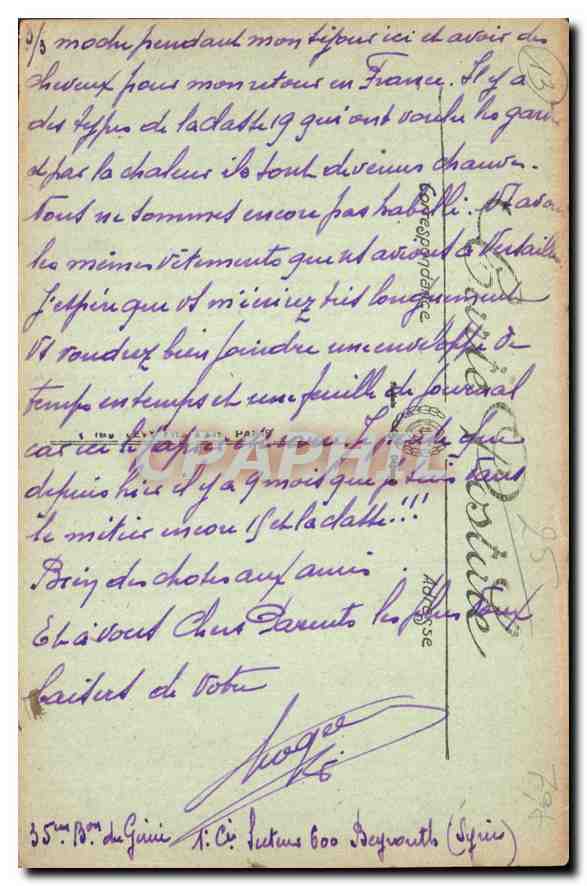 3/3 mode pendant mon séjour ici et avoir des
cheveux pour mon retour en France. Il y a
des types de la classe 19 qui ont voulu les garder
et par la chaleur ils sont devenus chauves.
Nous ne sommes encore pas habillé. Ns avons
les mêmes vêtements que ns avions à Versailles
J'espère que vs m'écrirez très longuement
Vs voudrez bien joindre une enveloppe de
temps en temps et une feuille de journal
car ici le
depuis hier il y a 9 mois que je suis dans
le métier encore 15 et la classe!!!
Bien des choses aux amis
Et à vous Chers Parents les plus doux
baisers de votre
Roger
35ème Bon du Génie 1e Cie Secteur 600 Beyrouth (Syrie)
Carte Postale
Correspondance
Adresse
CPAPHIL
13
25